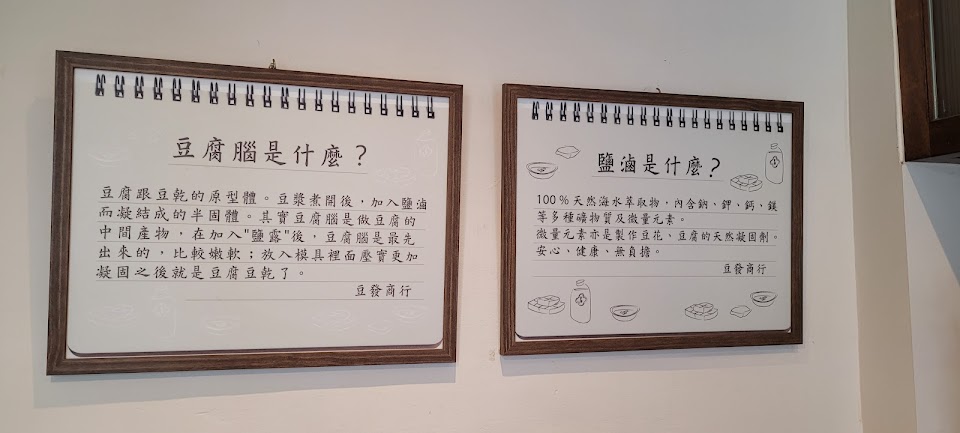 豆腐腦是什麼？
豆腐跟豆乾的原型體。豆漿煮開後，加入鹽滷
而凝結成的半固體。其實豆腐腦是做豆腐的
中間產物，在加入"鹽露"後，豆腐腦是最先
出來的，比較嫩軟；放入模具裡面壓實更加
凝固之後就是豆腐豆乾了。
豆發商行
鹽滷是什麼？
100%天然海水萃取物，內含鈉、鉀、鈣、鎂
等多種礦物質及微量元素。
微量元素亦是製作豆花、豆腐的天然凝固劑。
安心、健康、無負擔。
豆發商行